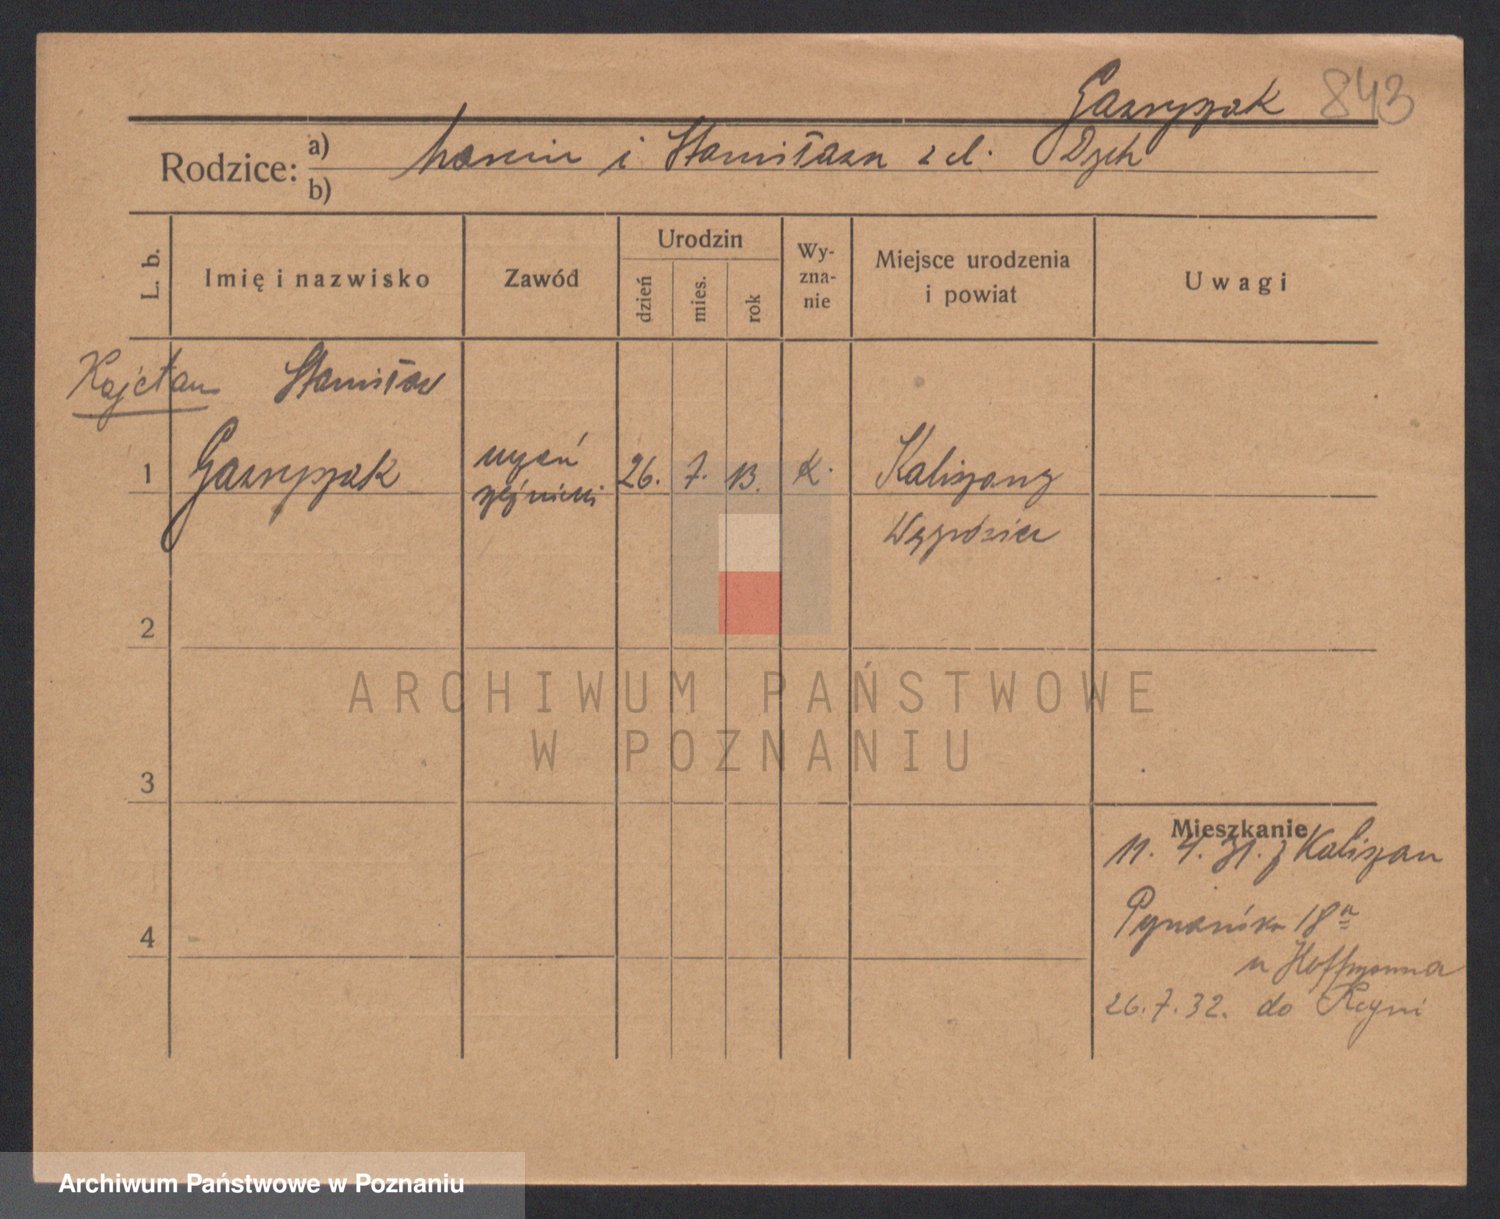 843
Rodzice: a) Marcin i Stanisława z d. Dych
b)
L. b.
Imię i nazwisko
Zawód
Urodzin
dzień
mies.
rok
Wy-
zna-
nie
Miejsce urodzenia
i powiat
Uwagi
Kajetan Stanisław
1 uczeń 26. 7. 13. k. Kaliszany
rzeźnicki
Wągrowiec
2
ARCHIWUM PAŃSTWOWE
W POZNANIU
3
Mieszkanie
11. 4. 31. z Kaliszan
4
18
u Hoffmanna
26.7.32. do Kcyni
Archiwum Państwowe w Poznaniu